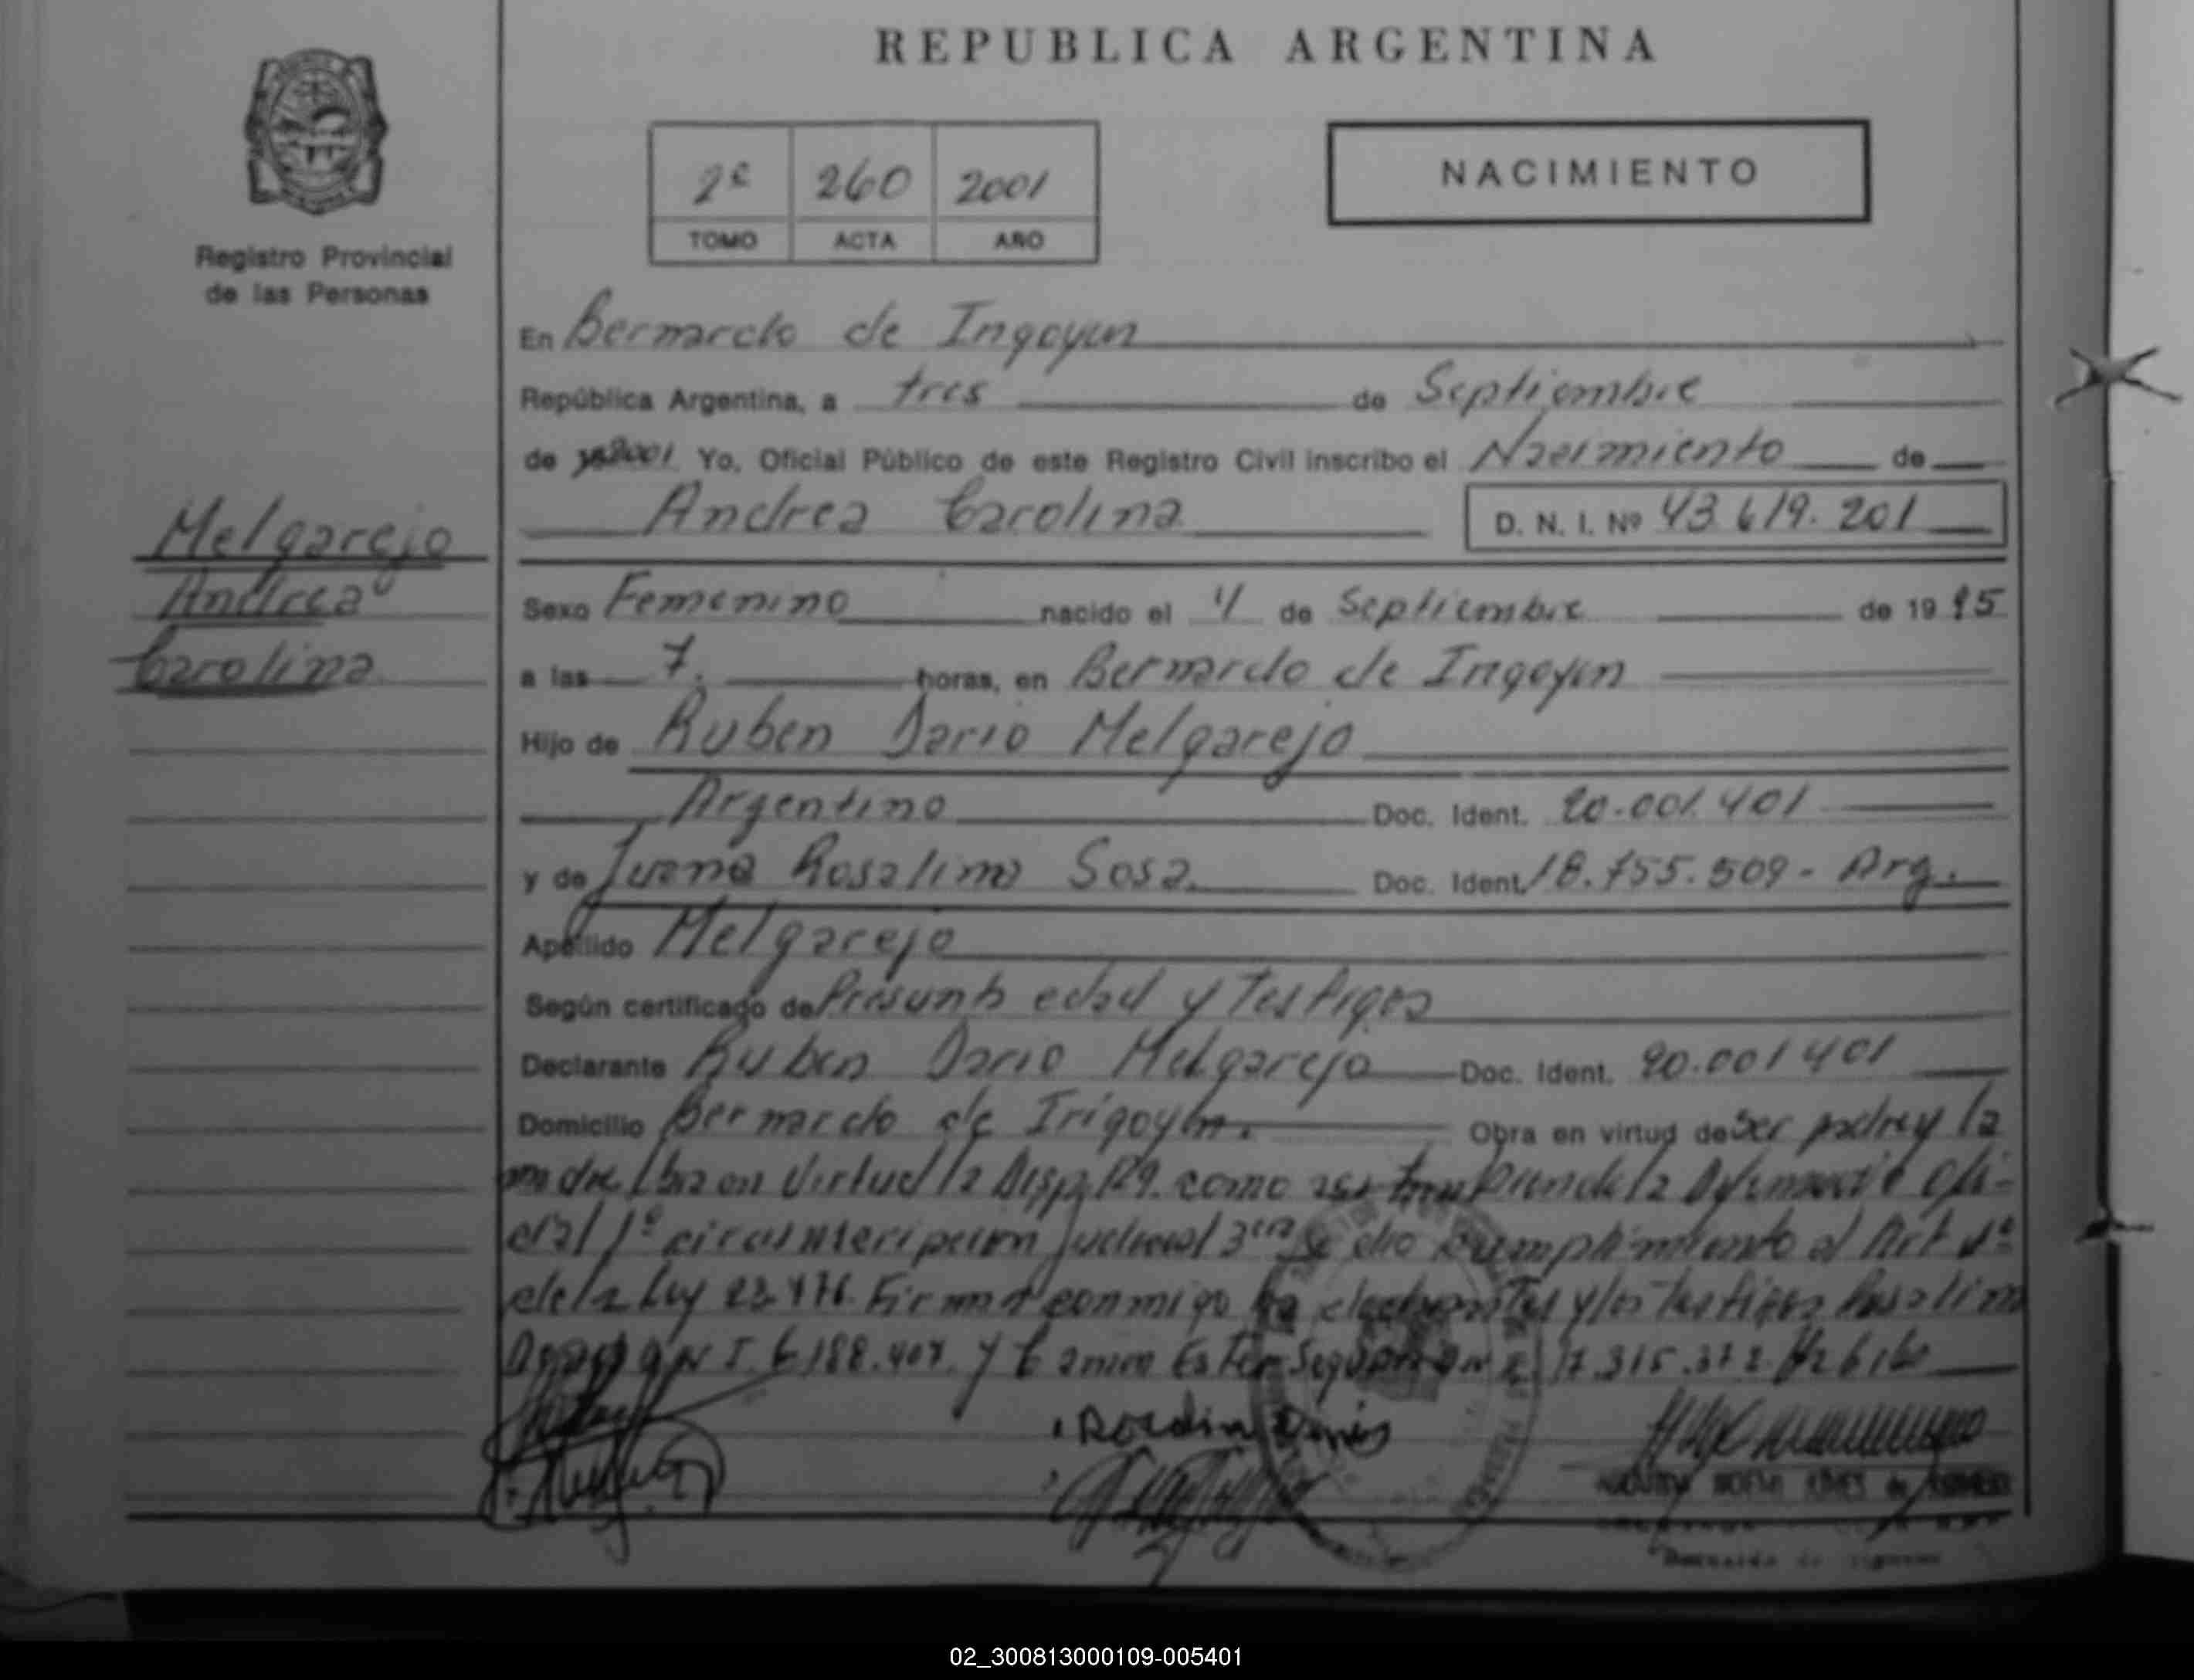 REPUBLICA ARGENTINA
2º 260 2001
TOMO ACTA AÑO
NACIMIENTO
Registro Provincial
de las Personas
En Bernardo de Irigoyen
República Argentina, a tres de Septiembre
de 2001 Yo, Oficial Público de este Registro Civil inscribo el Nacimiento de
Andrea Carolina D. N. I. Nº 43.619.201
Melgarejo
Andrea
Carolina
Sexo Femenino nacido el 4 de Septiembre de 19 95
a las 7. horas, en Bernardo de Irigoyen
Hijo de Ruben Dario Melgarejo
Argentino Doc. Ident. 20.001.401
y de Juana Rosalina Sosa. Doc. Ident. 18.755.509 - Arg.
Apellido Melgarejo
Según certificado de Presunta edad y Testigos
Declarante Ruben Dario Melgarejo Doc. Ident. 20.001401
Domicilio Bernardo de Irigoyen. Obra en virtud de Ser padre y la
madre en Virtud la Disp. 129. como
1º judicial 3era Se dio cumplimiento al Art 1º
de la Ley 23.776. Firman conmigo y los Testigos Rosalina
N I 6.188.407. y Ester 17.315.372
02_300813000109-005401